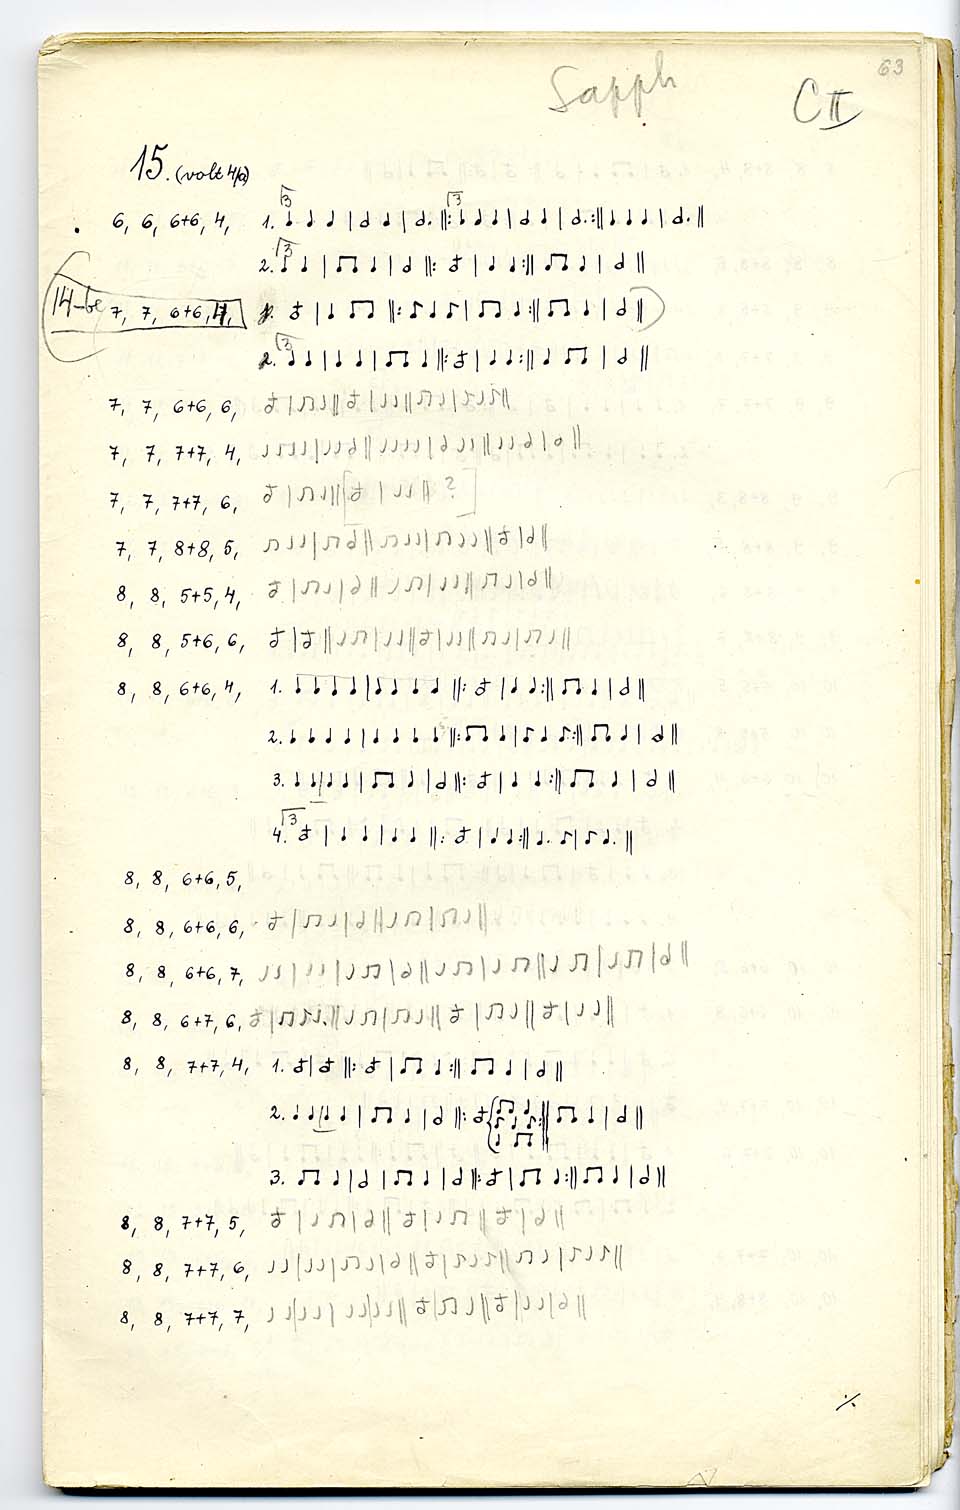 63
Sapph
C II
15. (volt 4/a)
6, 6, 6+6, 4, 1.
3 3
2.
3
14-be 7, 7, 6+6, 4,
2.
3
7, 7, 6+6, 6,
7, 7, 7+7, 4,
7, 7, 7+7, 6, ?
7, 7, 8+8, 5,
8, 8, 5+5, 4,
8, 8, 5+6, 6,
8, 8, 6+6, 4, 1.
2.
3.
3
4.
8, 8, 6+6, 5,
8, 8, 6+6, 6,
8, 8, 6+6, 7,
8, 8, 6+7, 6,
8, 8, 7+7, 4, 1.
2.
3.
8, 8, 7+7, 5,
8, 8, 7+7, 6,
8, 8, 7+7, 7,
·/.